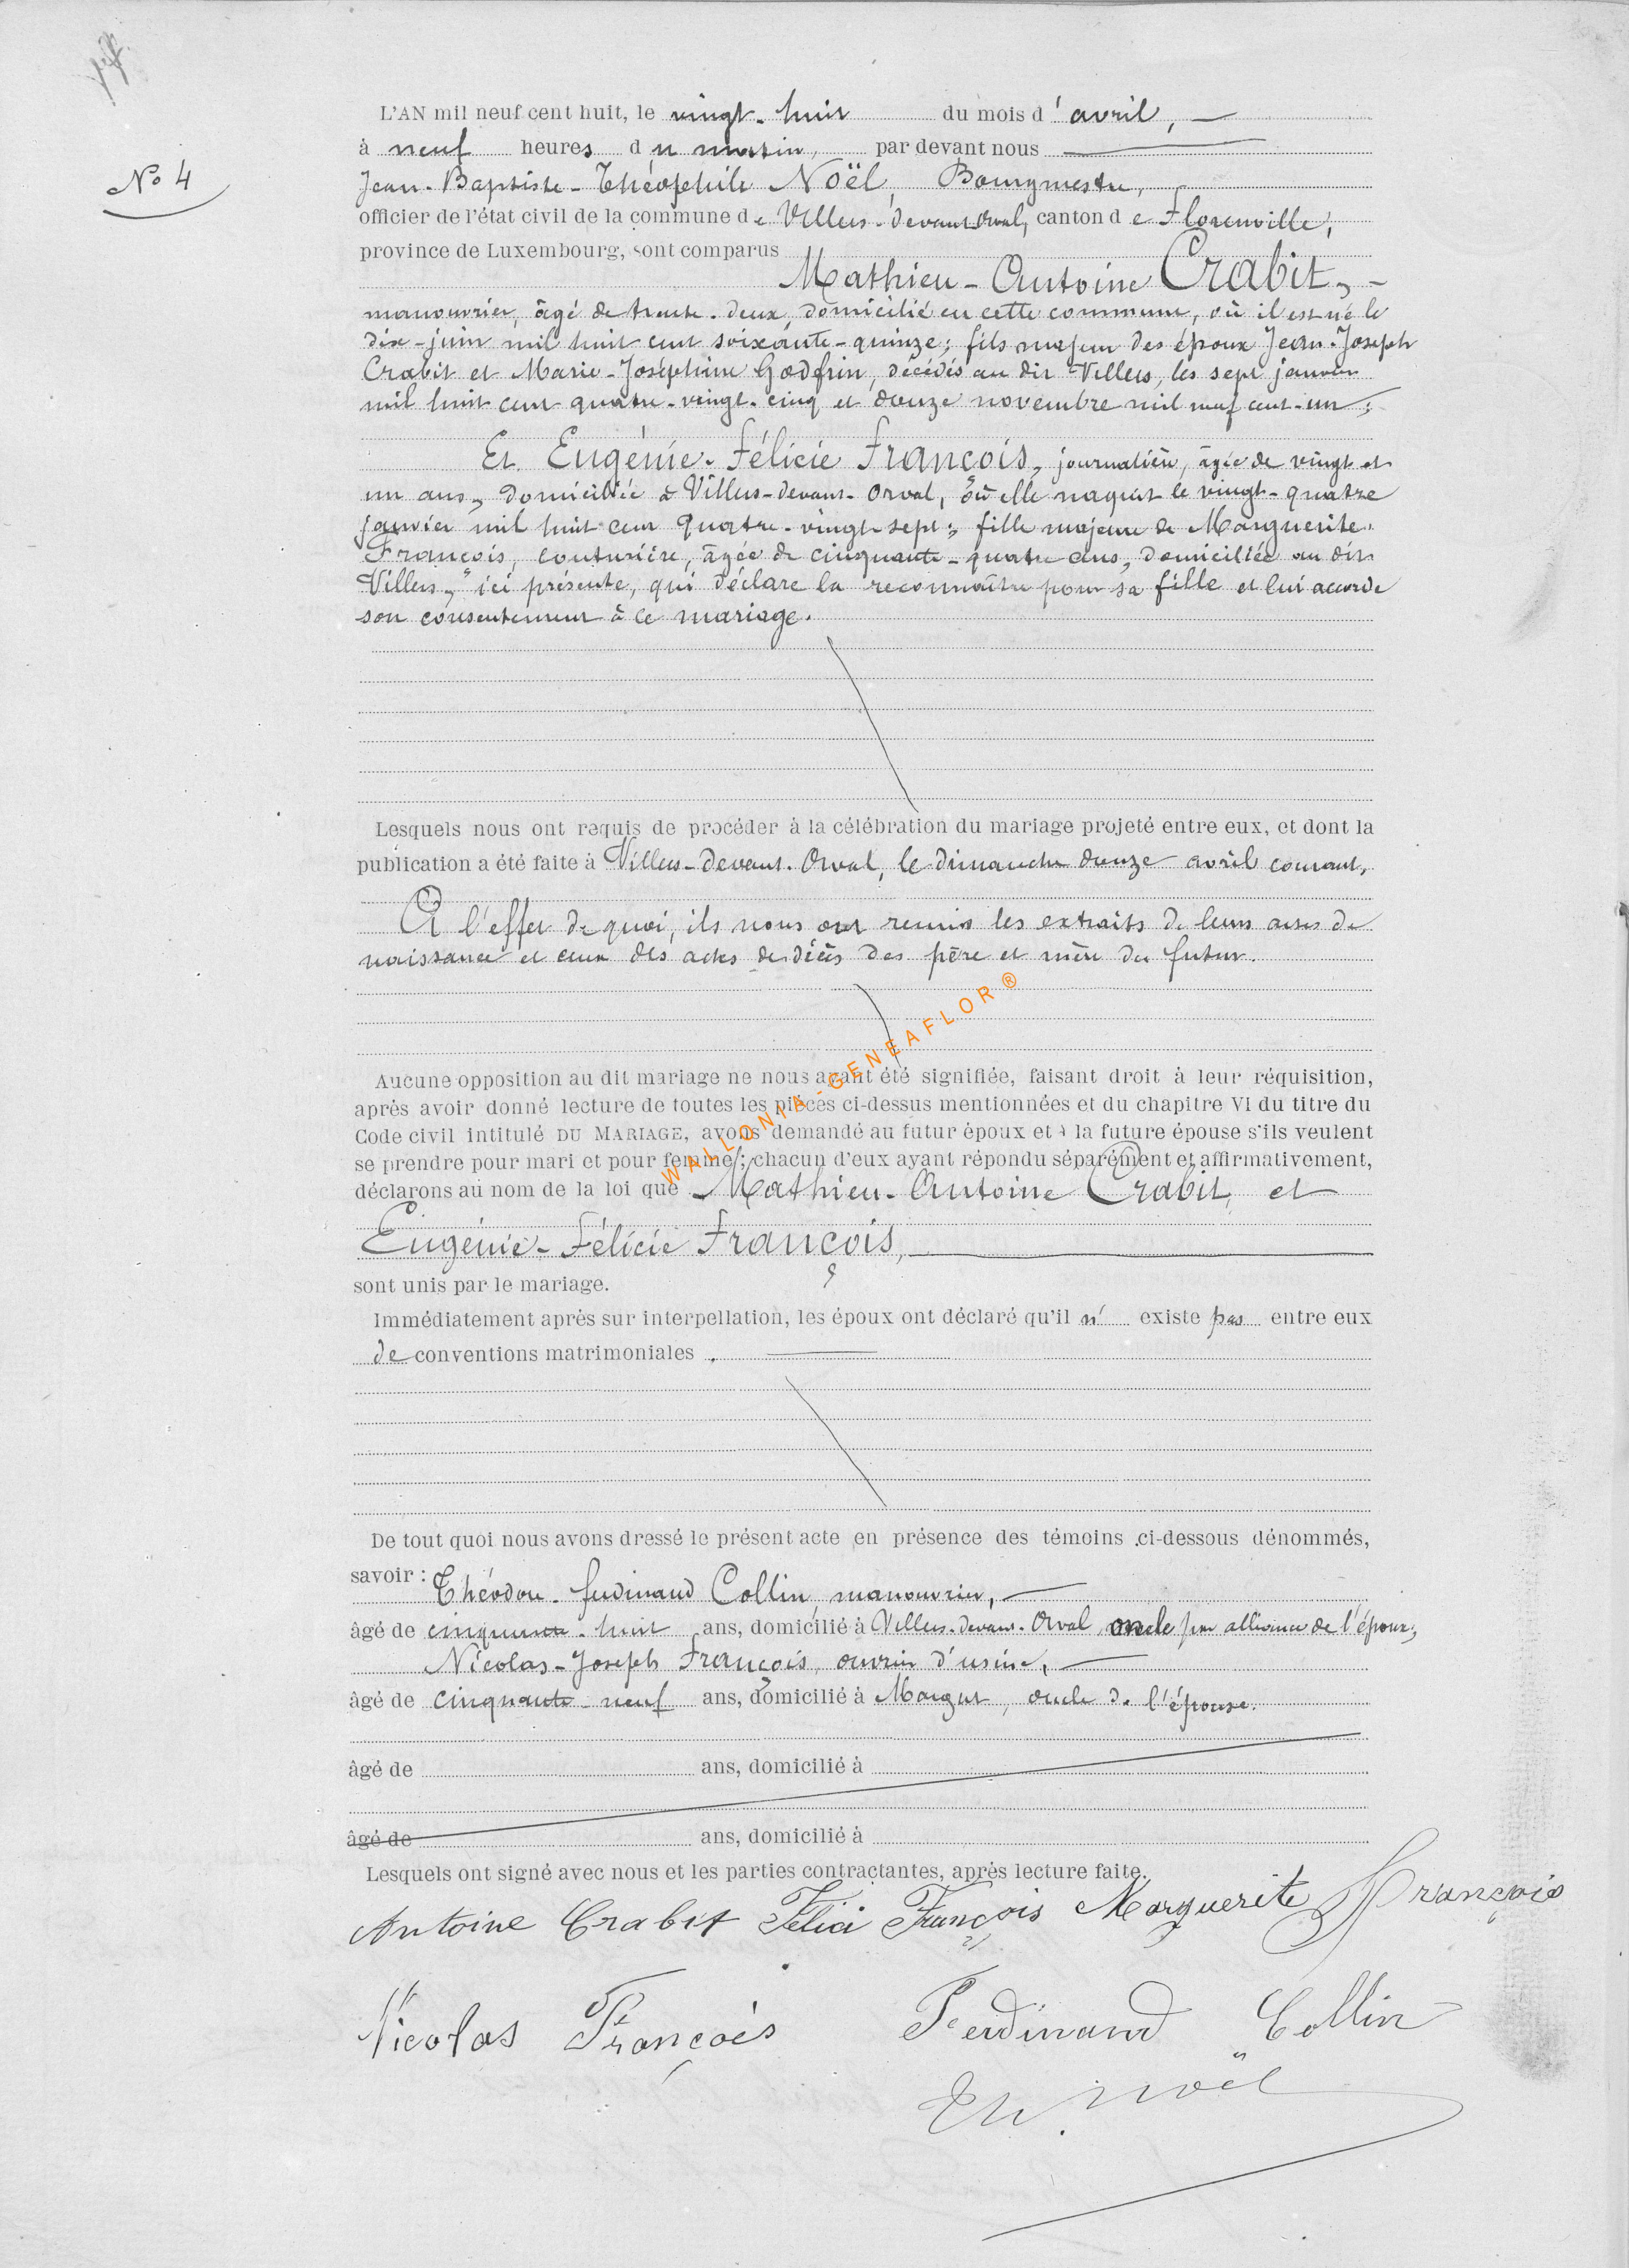 L'AN mil neuf cent huit, le vingt-huit du mois d'avril,
à neuf heures du matin, par devant nous
N° 4
Jean-Baptiste-Théophile Noël, Bourgmestre,
officier de l'état civil de la commune de Villers-devant-Orval, canton de Florenville,
province de Luxembourg, sont comparus
Mathieu-Antoine Crabit,
manouvrier, âgé de trente-deux, domicilié en cette commune, où il est né le
dix-juin mil huit cent soixante-quinze; fils majeur des époux Jean-Joseph
Crabit et Marie-Joséphine Godfrin, décédés au dit Villers, les sept janvier
mil huit cent quatre-vingt-cinq et douze novembre mil neuf cent-un;
Et Eugénie-Félicie François, journalière, âgée de vingt et
un ans, domiciliée à Villers-devant-Orval, où elle naquit le vingt-quatre
janvier mil huit cent quatre-vingt-sept; fille majeure de Marguerite
François, couturière, âgée de cinquante-quatre ans, domiciliée au dit
Villers, ici présente, qui déclare la reconnaître pour sa fille et lui accorde
son consentement à ce mariage.
Lesquels nous ont requis de procéder à la célébration du mariage projeté entre eux, et dont la
publication a été faite à Villers-devant-Orval, le dimanche douze avril courant,
A l'effet de quoi, ils nous ont remis les extraits de leurs actes de
naissance et ceux des actes de décès des père et mère du futur.
WALLONIA-GENEAFLOR®
Aucune opposition au dit mariage ne nous ayant été signifiée, faisant droit à leur réquisition,
après avoir donné lecture de toutes les pièces ci-dessus mentionnées et du chapitre VI du titre du
Code civil intitulé DU MARIAGE, avons demandé au futur époux et à la future épouse s'ils veulent
se prendre pour mari et pour femme; chacun d'eux ayant répondu séparément et affirmativement,
déclarons au nom de la loi que Mathieu-Antoine Crabit, et
Eugénie-Félicie François,
sont unis par le mariage.
Immédiatement après sur interpellation, les époux ont déclaré qu'il n' existe pas entre eux
de conventions matrimoniales.
De tout quoi nous avons dressé le présent acte en présence des témoins ci-dessous dénommés,
savoir : Théodore-Ferdinand Collin, manouvrier,
âgé de cinquante-huit ans, domicilié à Villers-devant-Orval, oncle par alliance de l'époux,
Nicolas-Joseph François, ouvrier d'usine,
âgé de cinquante-neuf ans, domicilié à Margut, oncle de l'épouse.
âgé de ans, domicilié à
âgé de ans, domicilié à
Lesquels ont signé avec nous et les parties contractantes, après lecture faite.
Antoine Crabit Félici François Marguerite François
Nicolas François Ferdinand Collin
Th. Noël